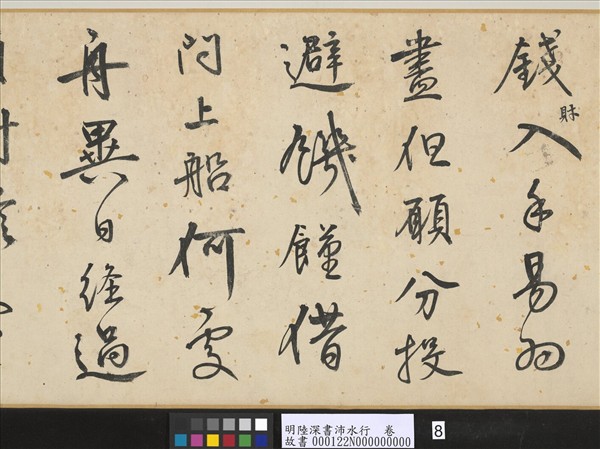 錢財入手易為
盡但願分投
避饑饉借
問上船何處
舟異日經過
明陸深書沛水行 卷
故書000122N000000000
8